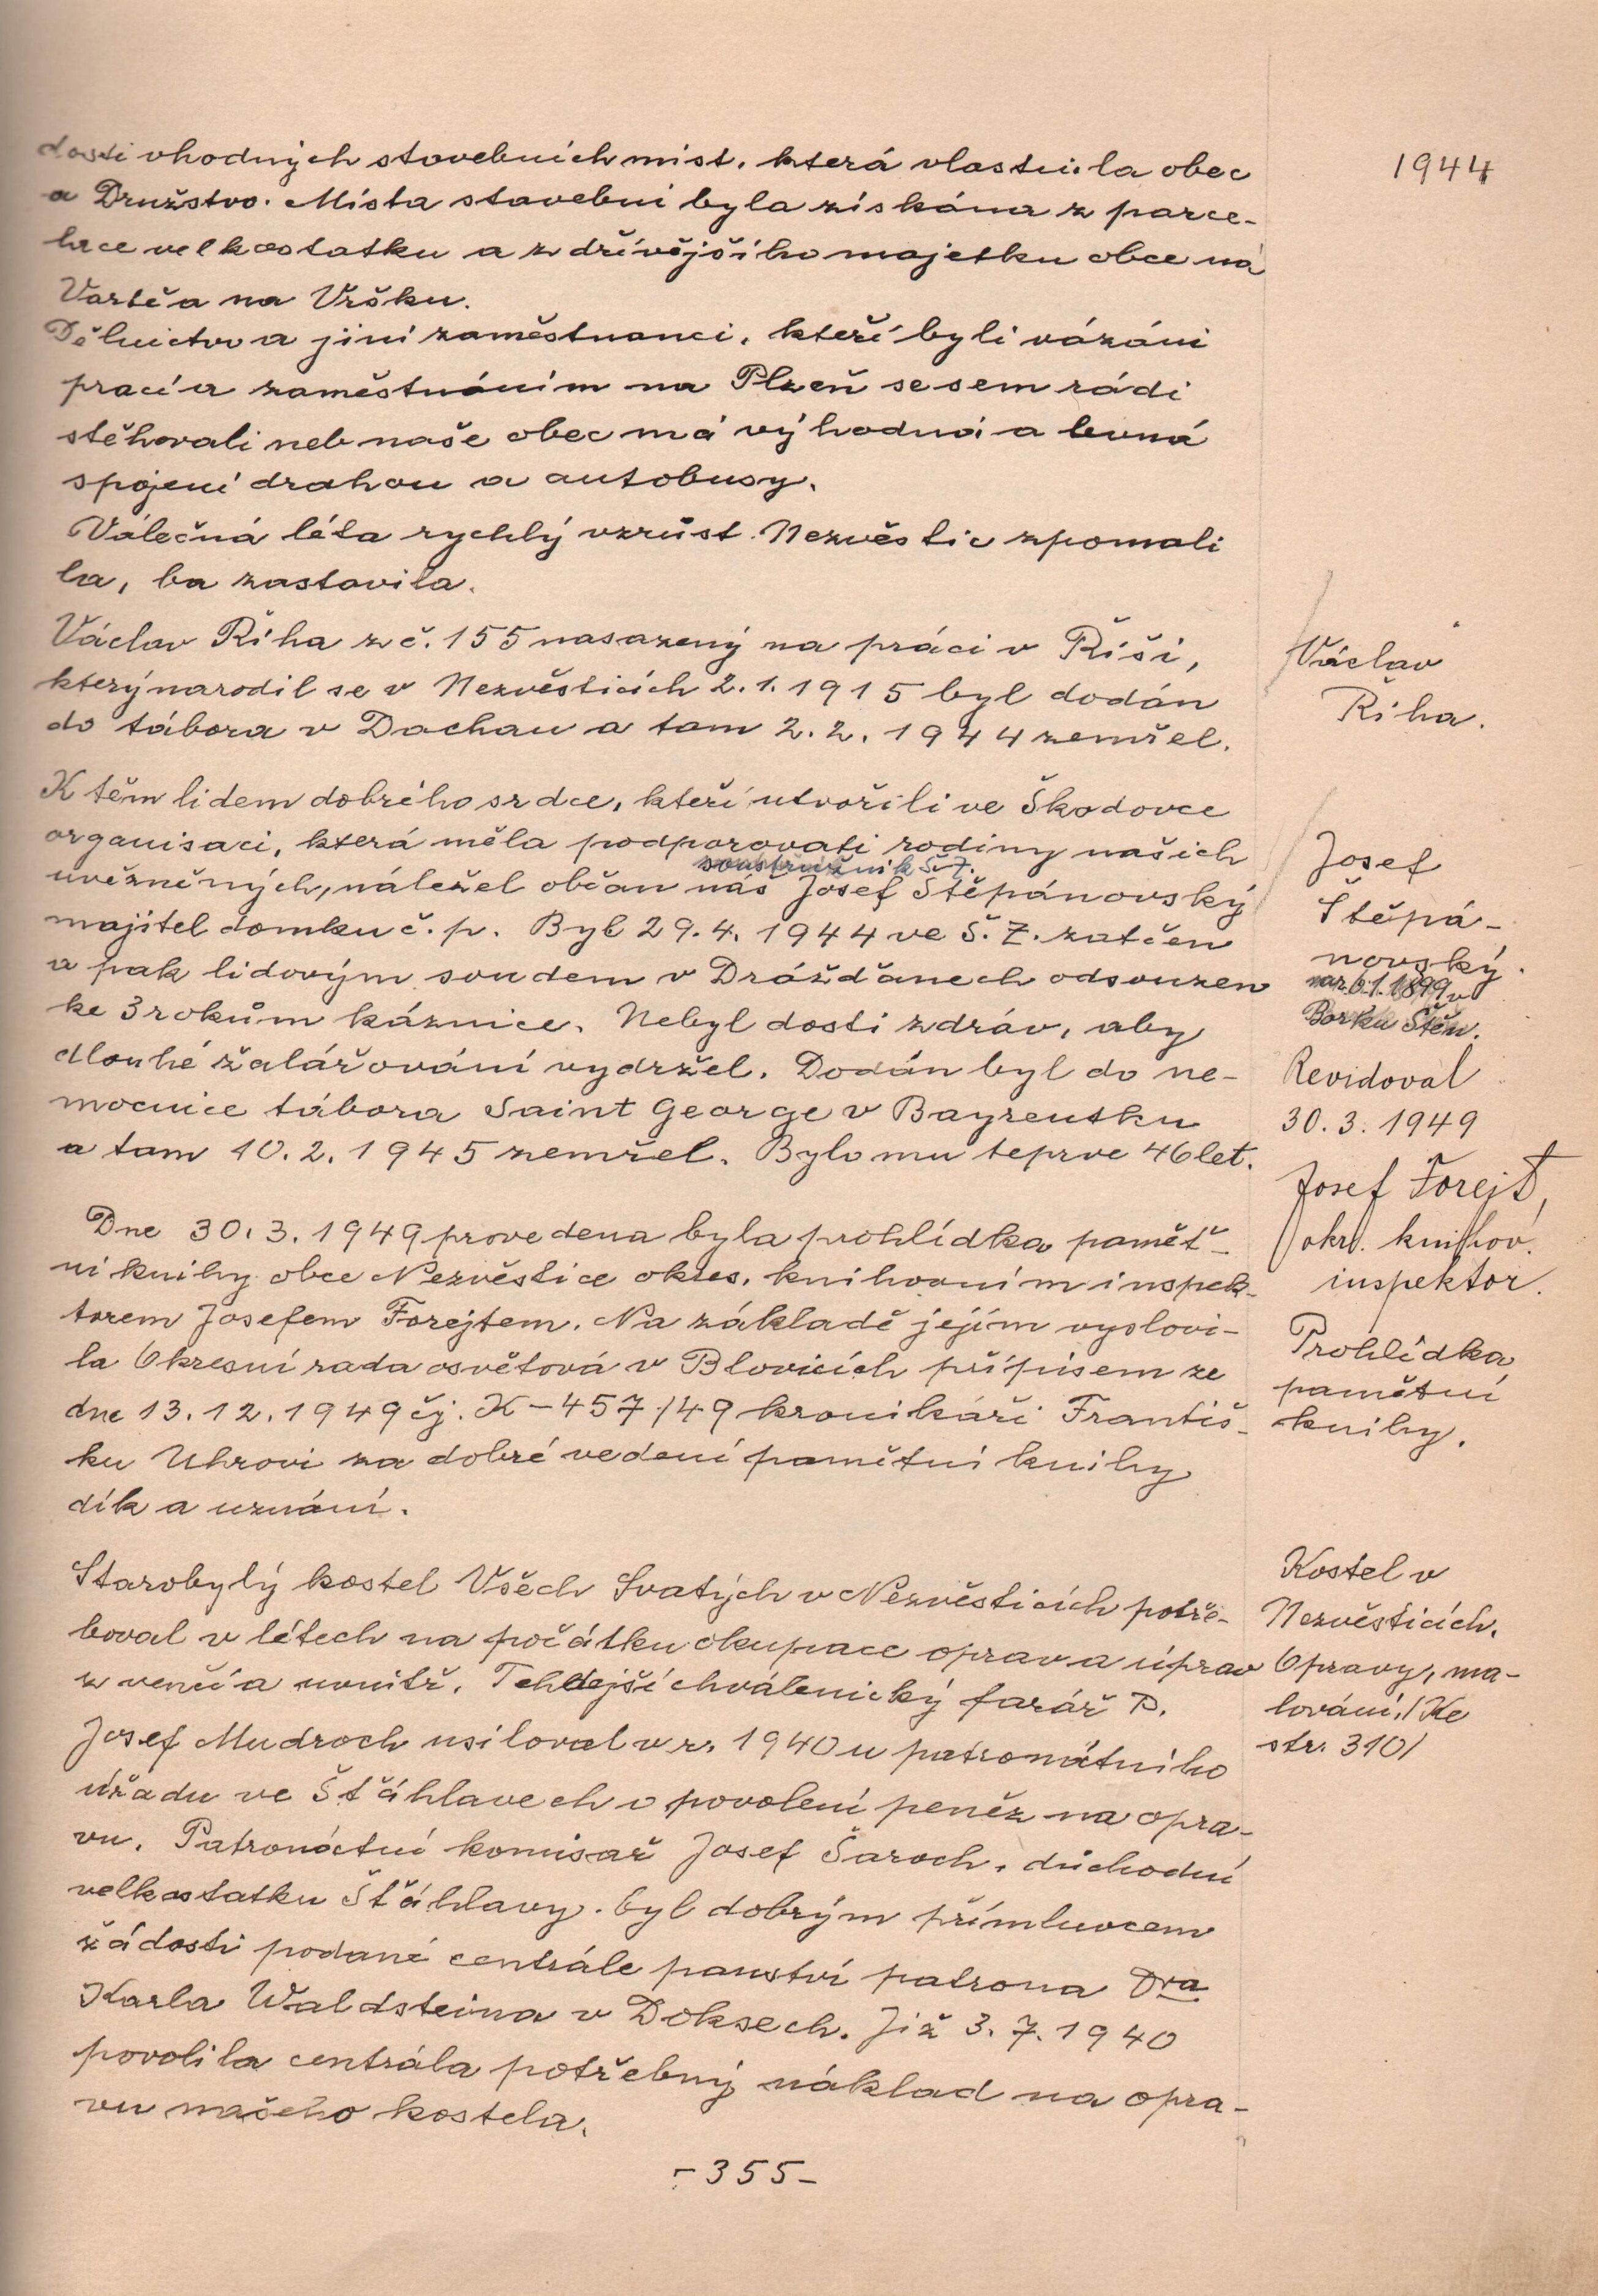 1944
dosti vhodných stavebních míst, která vlastnila obec
a Družstvo. Místa stavební byla získána z parce-
lace velkostatku a z dřívějšího majetku obce na
Vartě a na Vršku.
Dělnictvo a jiní zaměstnanci, kteří byli vázáni
prací a zaměstnáním na Plzeň se sem rádi
stěhovali neb naše obec má výhodná a levná
spojení drahou a autobusy.
Válečná léta rychlý vzrůst Nezvěstic zpomali
la, ba zastavila.
Václav Říha z č. 155 nasazený na práci v Říši,
který narodil se v Nezvěsticích 2.1.1915 byl dodán
do tábora v Dachau a tam 2.2.1944 zemřel.
Václav
Říha.
K těm lidem dobrého srdce, kteří utvořili ve Škodovce
organisaci, která měla podporovati rodiny našich
soustružník Š.Z.
uvězněných, náležel občan náš Josef Štěpánovský
majitel domku č. p. Byl 29.4.1944 ve Š.Z. zatčen
a pak lidovým soudem v Drážďanech odsouzen
ke 3 rokům káznice. Nebyl dosti zdráv, aby
dlouhé žalářování vydržel. Dodán byl do ne-
mocnice tábora Saint George v Bayreutku
a tam 10.2.1945 zemřel. Bylo mu teprve 46 let.
Josef
Štěpá-
novský.
nar. 6.1.1899 v
Borku Štěn.
Revidoval
30.3.1949
Josef Forejt,
okr. knihov.
inspektor.
Dne 30.3.1949 provedena byla prohlídka pamět-
ní knihy obce Nezvěstice okres. knihovním inspek-
torem Josefem Forejtem. Na základě jejím vyslovi-
la Okresní rada osvětová v Blovicích přípisem ze
dne 13.12.1949 čj. K-457/49 kronikáři Františ-
ku Uhrovi za dobré vedení pamětní knihy
dík a uznání.
Prohlídka
pamětní
knihy.
Starobylý kostel Všech Svatých v Nezvěsticích potře-
boval v létech na počátku okupace oprav a úprav
z venčí a uvnitř. Tehdejší chválenický farář P.
Josef Mudroch usiloval v r. 1940 u patronátního
úřadu ve Šťáhlavech o povolení peněz na opra-
vu. Patronátní komisař Josef Šaroch, důchodní
velkostatku Šťáhlavy. byl dobrým přímluvcem
žádosti podané centrále panství patrona Dra
Karla Waldsteina v Doksech. Již 3.7.1940
povolila centrála potřebný náklad na opra-
vu našeho kostela.
Kostel v
Nezvěsticích.
Opravy, ma-
lování. /Ke
str. 310/
-355-